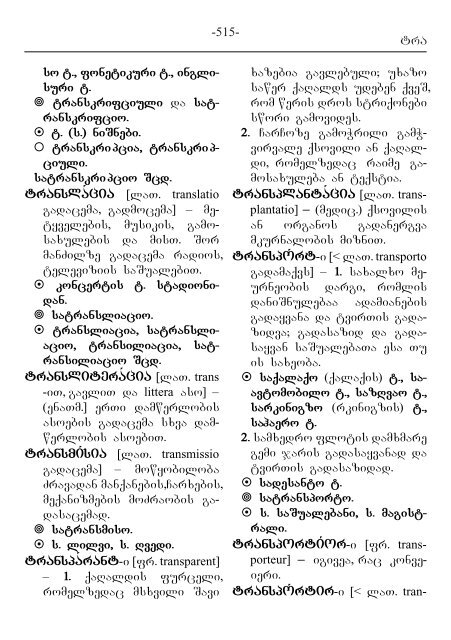 -515-
ტრა
სო ტ., ფონეტიკური ტ., ინგლი-
სური ტ.
ტრანსკრიფციული და სატ-
რანსკრიფციო.
ტ. (ს.) ნიშნები.
ტრანსკრიპცია, ტრანსკრიპ-
ციული.
სატრანსკრიპციო შცდ.
ტრანსლაცია [ლათ. translatio
გადაცემა, გადმოცემა] – მე-
ტყველების, მუსიკის, გამო-
სახულების და მისთ. შორ
მანძილზე გადაცემა რადიოს,
ტელევიზიის საშუალებით.
კონცერტის ტ. სტადიონი-
დან.
სატრანსლაციო.
ტრანსლიაცია, სატრანსლი-
აციო, ტრანსილიაცია, სატ-
რანსილიაციო შცდ.
ტრანსლიტერაცია [ლათ. trans
-ით, გავლით და littera ასო] –
(ენათმ.) ერთი დამწერლობის
ასოების გადაცემა სხვა დამ-
წერლობის ასოებით.
ტრანსმისია [ლათ. transmissio
გადაცემა] – მოწყობილობა
ძრავადან მანქანების, ჩარხების,
მექანიზმების მოძრაობის გა-
დასაცემად.
სატრანსმისო.
ს. ლილვი, ს. ღვედი.
ტრანსპარანტ-ი [ფრ. transparent]
– 1. ქაღალდის ფურცელი,
რომელზედაც მსხვილი შავი
ხაზებია გავლებული; უხაზო
საწერ ქაღალდს უდებენ ქვეშ,
რომ წერის დროს სტრიქონები
სწორი გამოვიდეს.
2. ჩარჩოზე გამოჭრილი გამჭ-
ვირვალე ქსოვილი ან ქაღალ-
დი, რომელზედაც რაიმე გა-
მოსახულება ან ტექსტია.
ტრანსპლანტაცია [ლათ. trans-
plantatio] – (მედიც.) ქსოვილის
ან ორგანოს გადანერგვა
მკურნალობის მიზნით.
ტრანსპორტ-ი [< ლათ. transporto
გადამაქვს] – 1. სახალხო მე-
ურნეობის დარგი, რომლის
დანიშნულებაა ადამიანების
გადაყვანა და ტვირთის გადა-
ზიდვა; გადასაზიდ და გადა-
საყვან საშუალებათა ესა თუ
ის სახეობა.
საქალაქო (ქალაქის) ტ., სა-
ავტომობილო ტ., საზღვაო ტ.,
სარკინიგზო (რკინიგზის) ტ.,
საჰაერო ტ.
2. სამხედრო ფლოტის დამხმარე
გემი ჯარის გადასაყვანად და
ტვირთის გადასაზიდად.
სადესანტო ტ.
სატრანსპორტო.
ს. საშუალებანი, ს. მაგისტ-
რალი.
ტრანსპორტიორ-ი [ფრ. trans-
porteur] – იგივეა, რაც კონვე-
იერი.
ტრანსპორტირ-ი [< ლათ. tran-